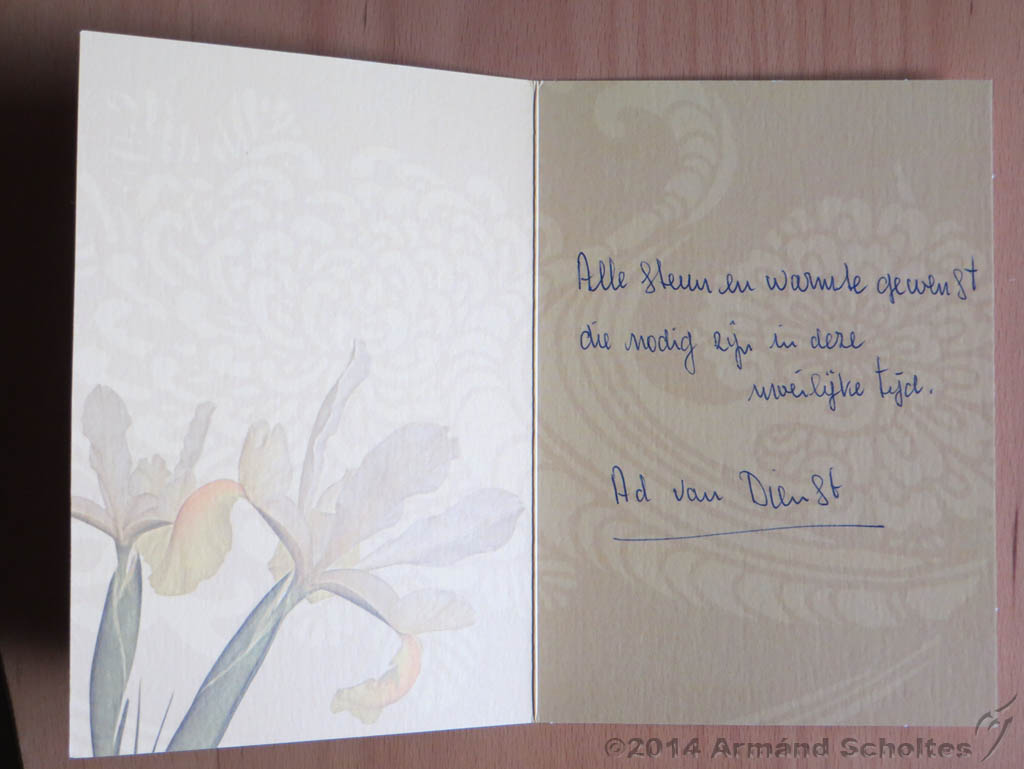 Alle steun en warmte gewenst
die nodig zijn in deze
moeilijke tijd.
Ad van Dienst
©2014 Armánd Scholtes